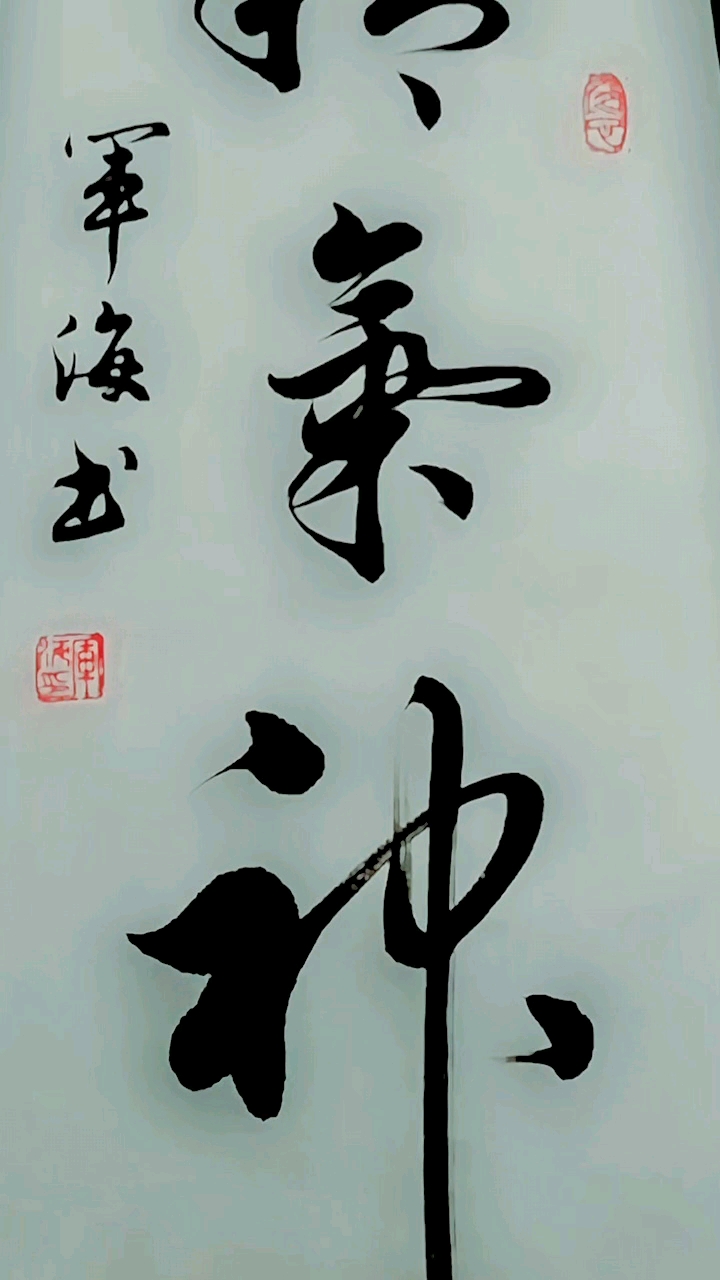 氣神
軍海书